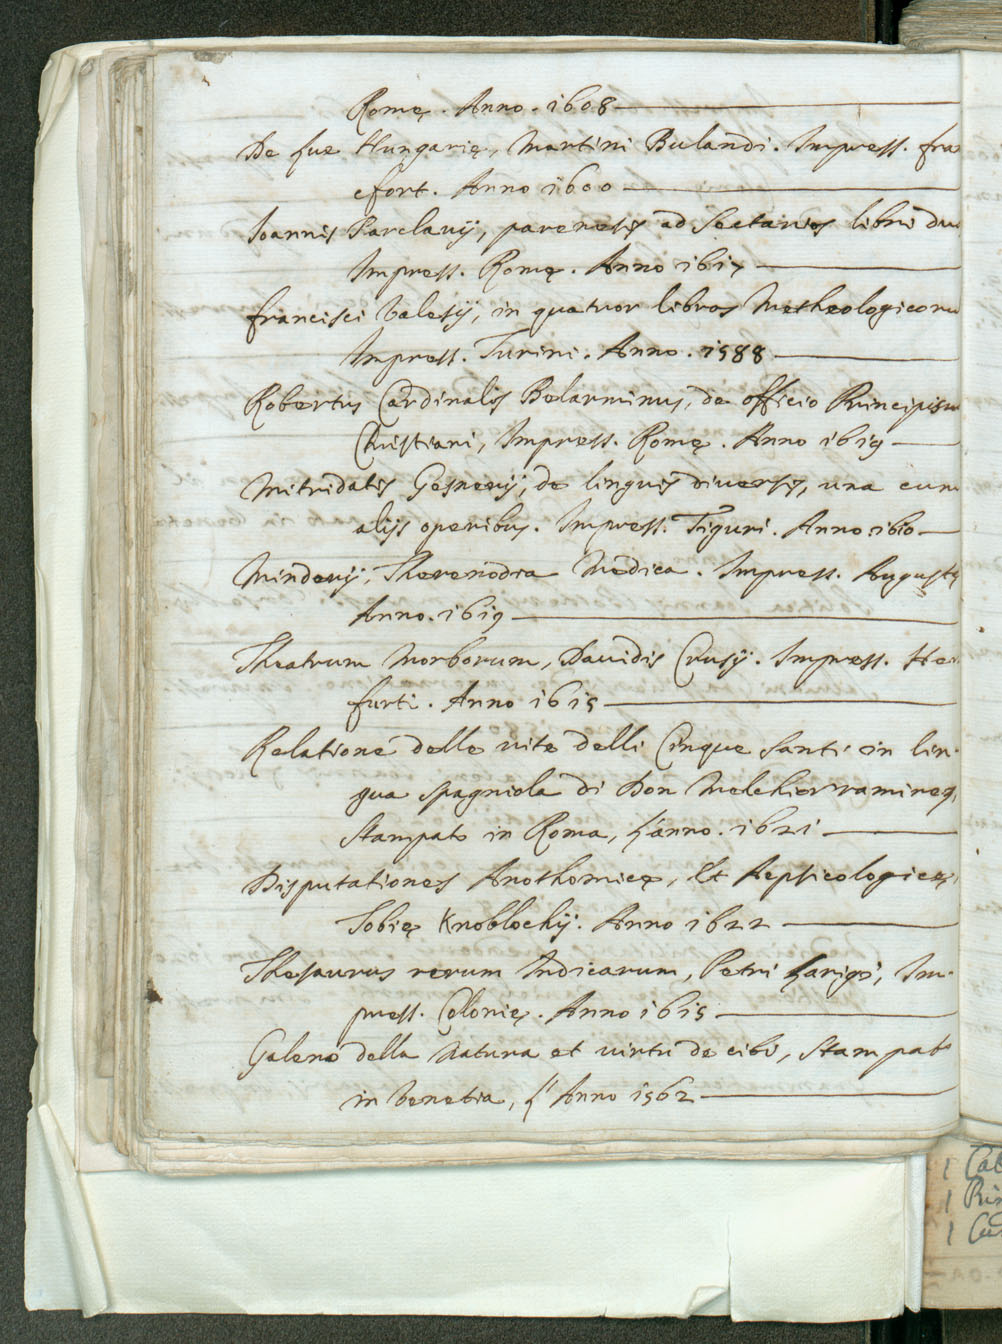 Romę. Anno. 1608
De lue Hungarię, Martini Rulandi. Impress. fra
cfort. Anno 1600
Ioannis Barclaÿ, parenesis ad Sectarios libri duo
Impress. Romę. Anno 1617
francisci Valesÿ, in quatuor libros Metheologicoru
Impress. Turini. Anno. 1588
Robertus Cardinalis Belarminus, de officio Principis
Christiani, Impress. Romę. Anno 1619
Mitridatis Gesnerÿ, de linguis diversis, una cum
alijs operibus. Impress. Tiguri. Anno. 1610
Mindery, Therenodia Medica. Impress. Augustę
Anno. 1619
Theatrum Morborum, Dauidis Crusÿ. Impress. Her
furti. Anno 1615
Relatione delle uite delli Cinque Santi in lin.
gua spagniola di Don Melchior ramirez,
Stampato in Roma, L'anno. 1621
Disputationes Anothomicę, Et Aepsicologicę,
Tobię Knoblochÿ. Anno 1622
Thesaurus rerum Indicarum, Petri Larigi, Im.
press. Colonię. Anno 1615
Galeno della Natura et uirtu de cibi, Stampato
in Venetia, L'Anno 1562